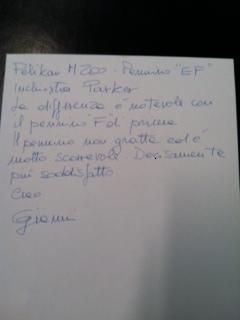 Pelikan M200 - Pennino "EF"
Inchiostro Parker
La differenza è notevole con
il pennino "F" di prima
Il pennino non gratta ed è
molto scorrevole. Decisamente
più soddisfatto
Ciao
Gianni